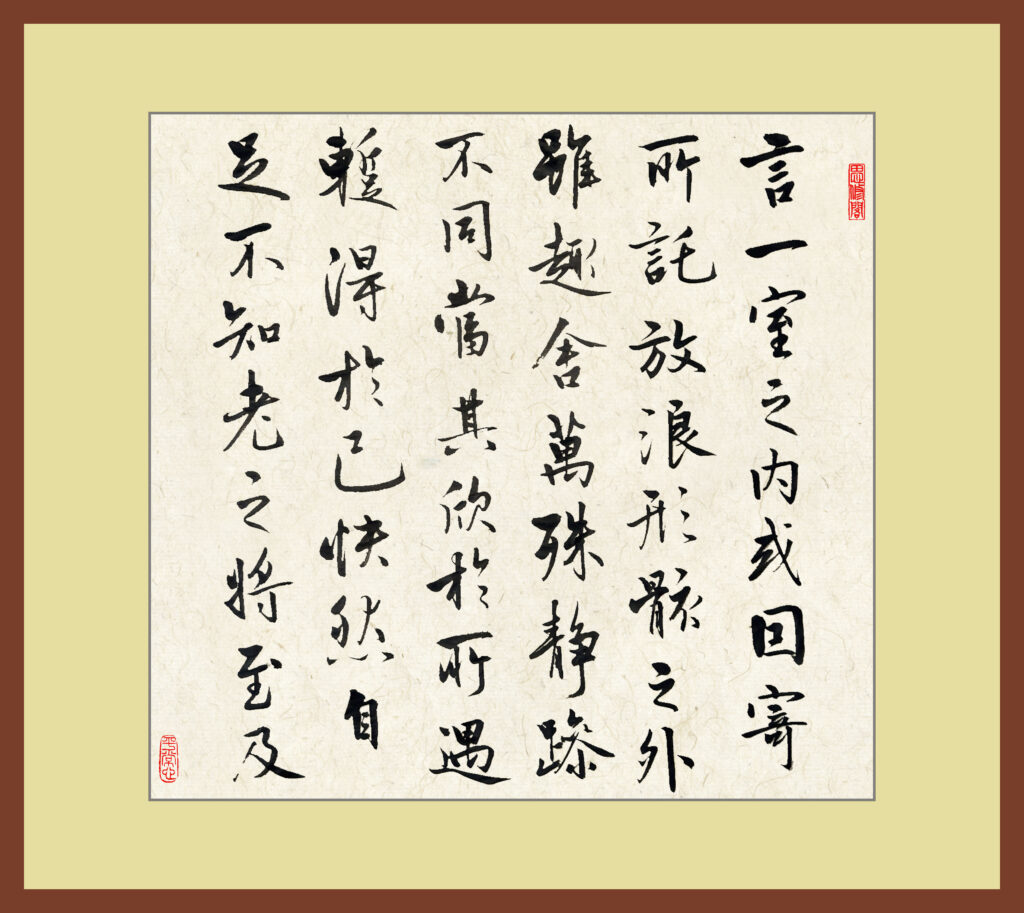 言一室之内或因寄
所託放浪形骸之外
雖趣舍萬殊静躁
不同當其欣於所遇
暫得於己快然自
足不知老之將至及
思修閣
平常心